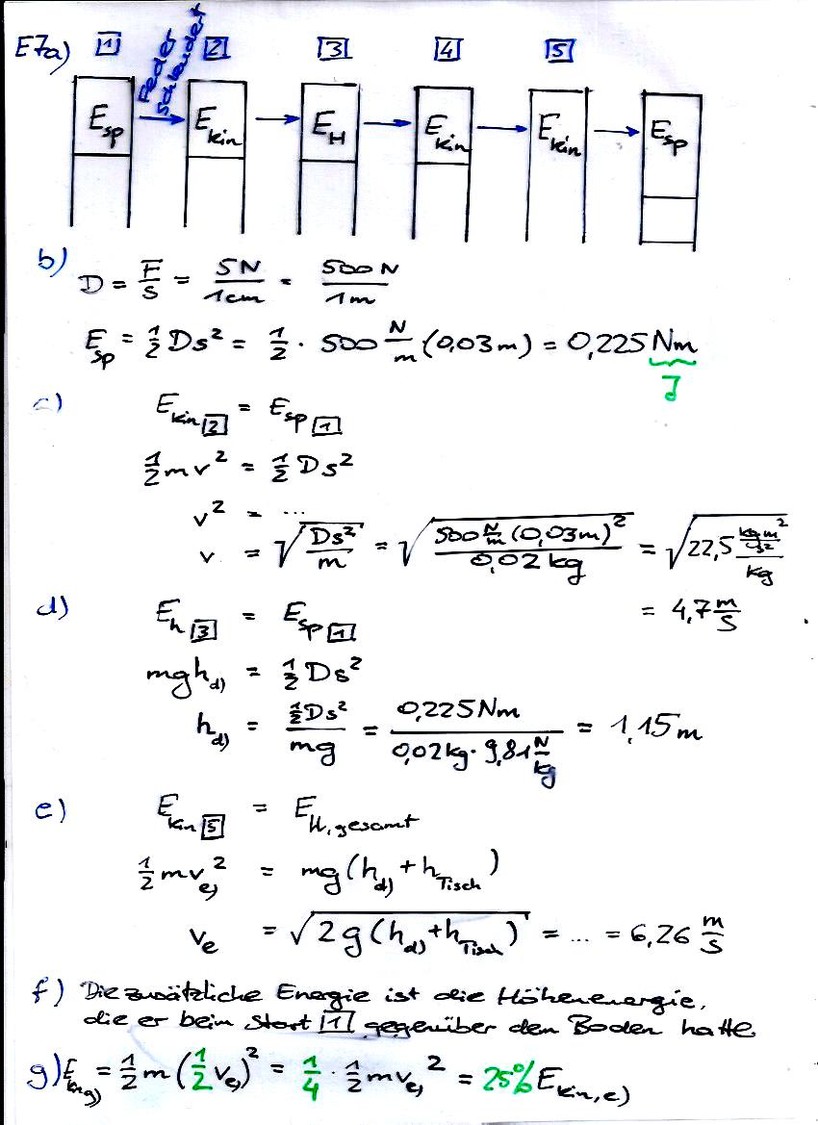 E7a) [1] Feder schleudert [2] [3] [4] [5]
E_sp → E_kin → E_H → E_kin → E_kin → E_sp
b) D = F/s = 5N/1cm = 500N/1m
E_sp = 1/2 Ds² = 1/2 · 500 N/m (0,03m) = 0,225 Nm
J
c) E_kin[2] = E_sp[1]
1/2 mv² = 1/2 Ds²
v² = ...
v = √(Ds²/m) = √(500 N/m (0,03m)²/0,02kg) = √(22,5 (kgm²/s²)/kg)
= 4,7 m/s
d) E_h[3] = E_sp[1]
mgh_d) = 1/2 Ds²
h_d) = 1/2Ds²/mg = 0,225Nm/(0,02kg · 9,81 N/kg) = 1,15m
e) E_kin[5] = E_H,gesamt
1/2 mv_e)² = mg(h_d) + h_Tisch)
v_e = √(2g(h_d)+h_Tisch)) = ... = 6,26 m/s
f) Die zusätzliche Energie ist die Höhenenergie,
die er beim Start [1] gegenüber dem Boden hatte
g) E_kin g) = 1/2 m(1/2 v_e))² = 1/4 · 1/2 mv_e)² = 25% E_kin,e)